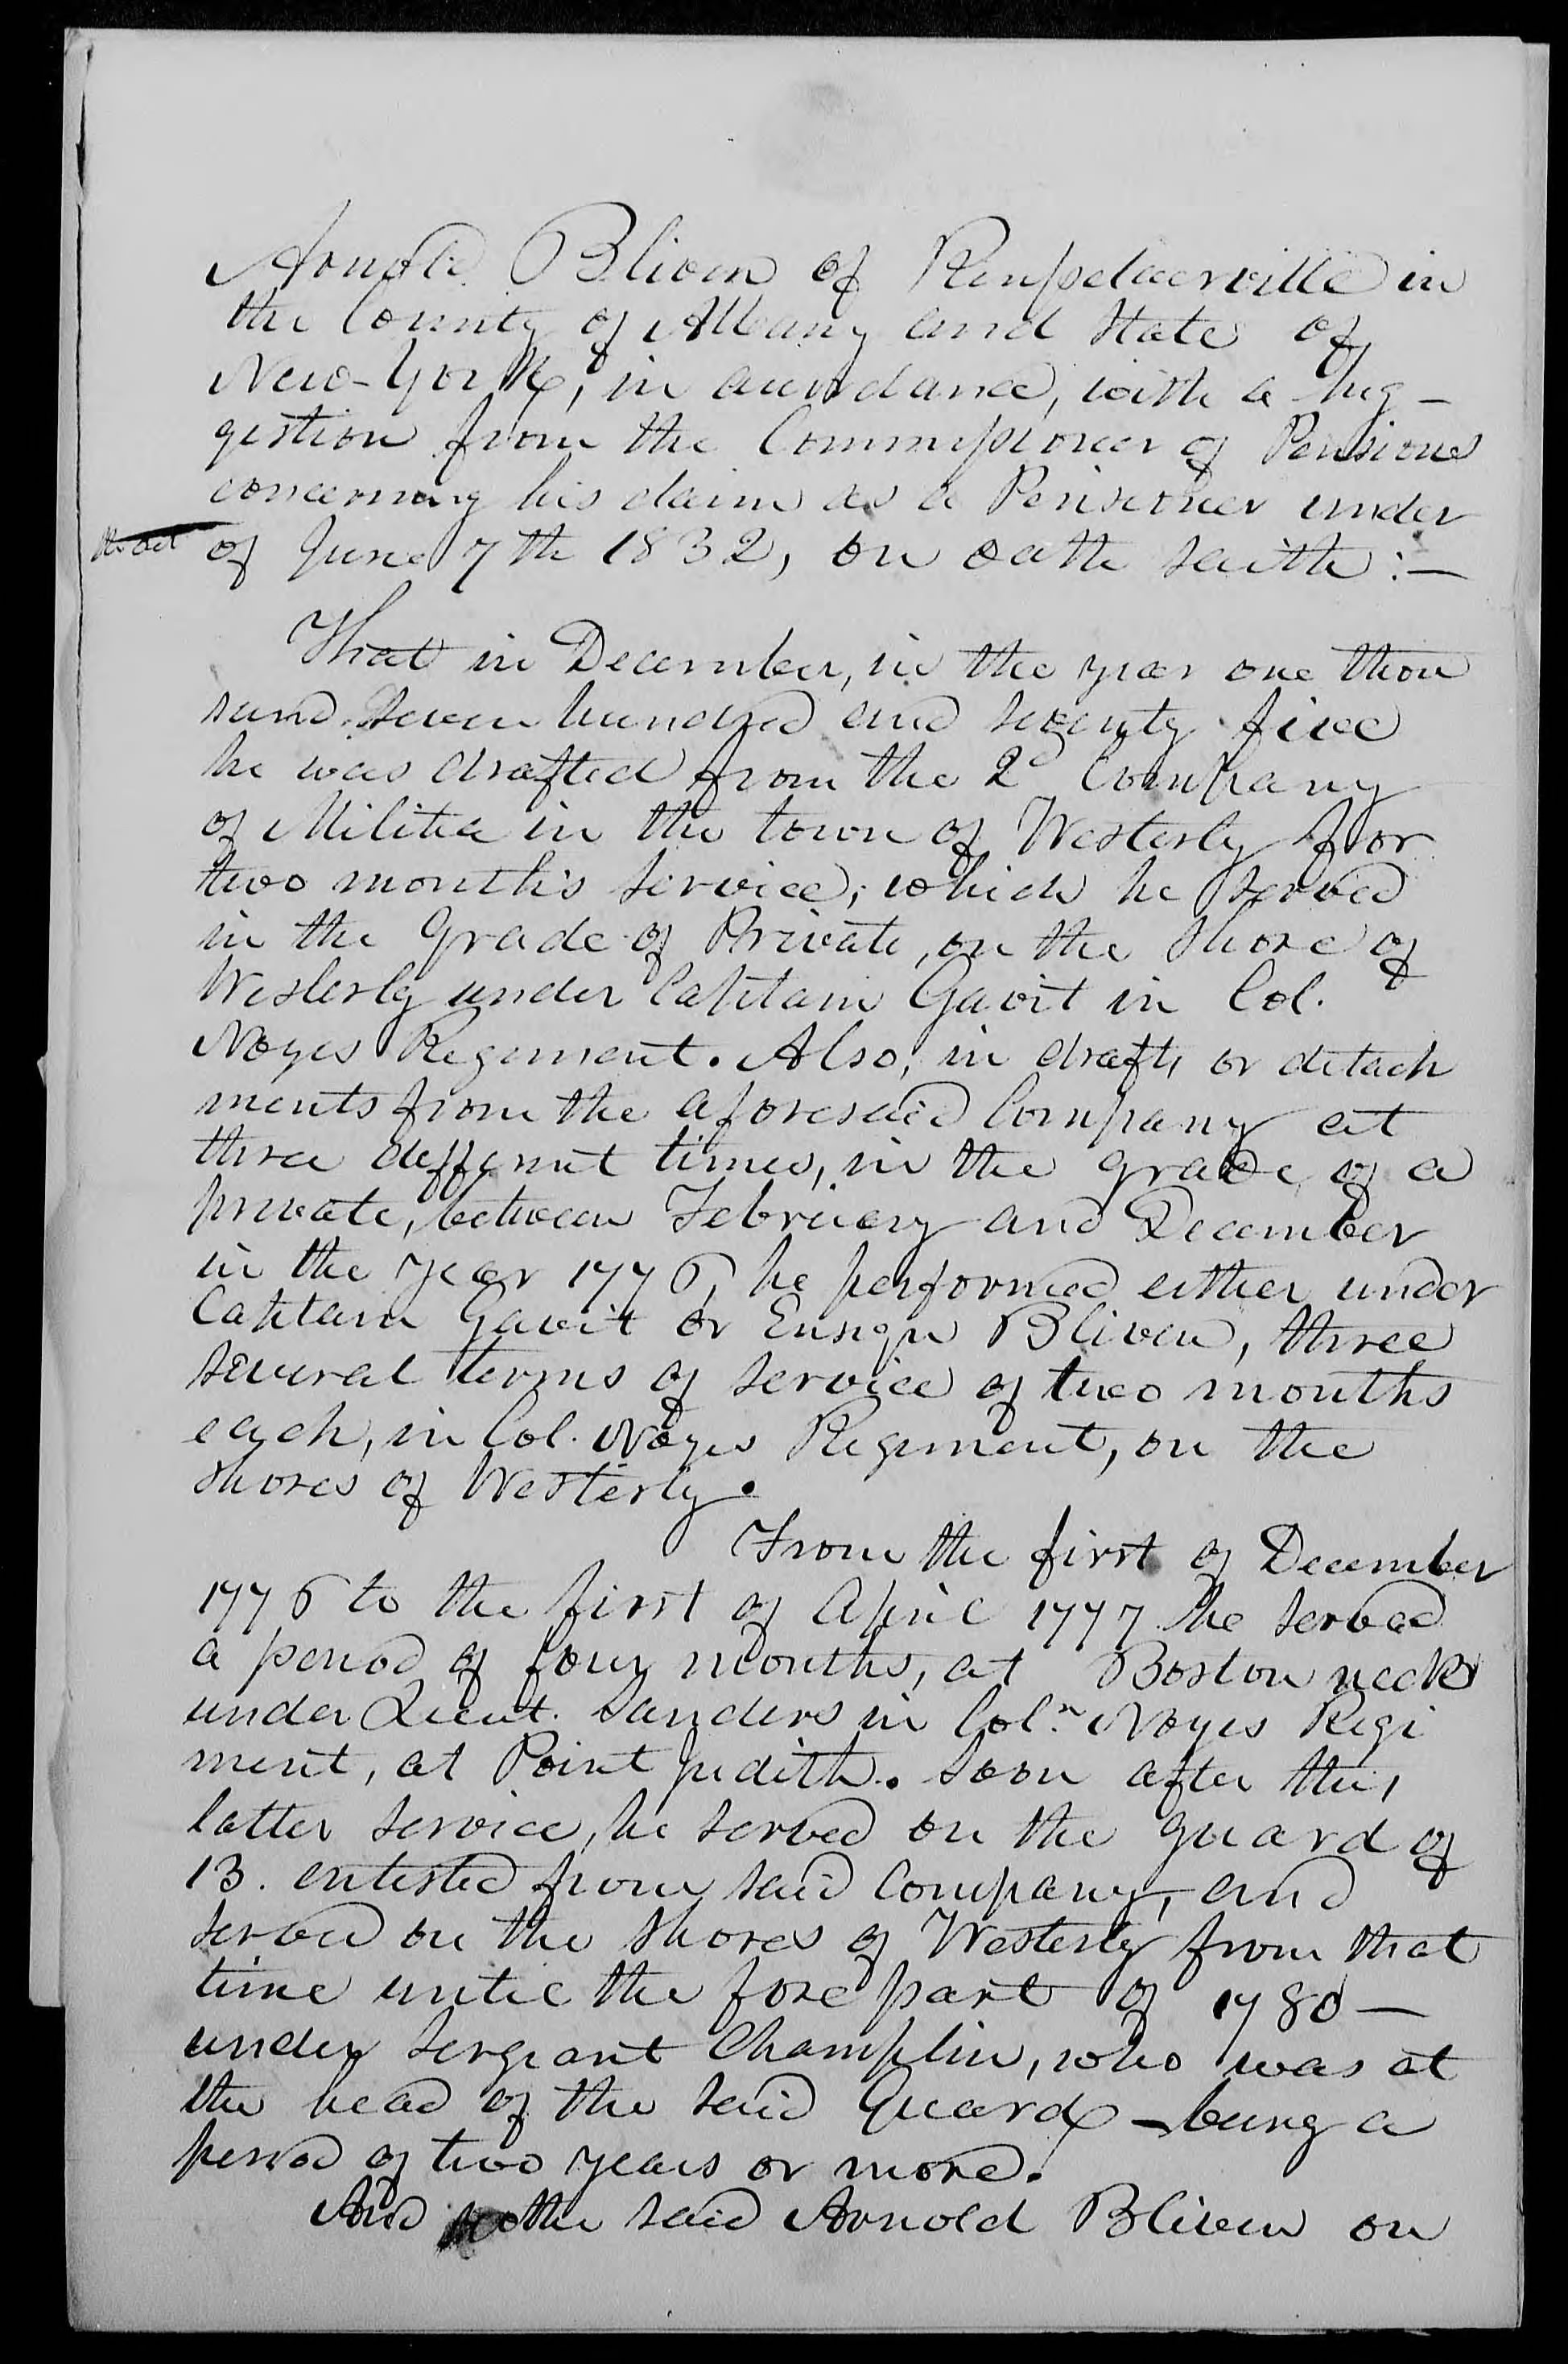 Arnold Bliven of Rensselaerville in
the County of Albany and State of
New-York, in accordance, with a sug-
gestion from the Commissioner of Pensions
concerning his claim as a Pensioner under
the act of June 7th 1832, on oath saith :—
That in December, in the year one thou
sand seven hundred and seventy five
he was drafted from the 2d Company
of Militia in the town of Westerly for
two month's service, which he served
in the Grade of Private, on the Shore of
Westerly under Captain Gavit in Col.
Noyes Regiment. Also, in drafts or detach
ments from the aforesaid Company at
three different times, in the grade of a
private, between February and December
in the year 1776, he performed either under
Captain Gavit or Ensign Bliven, three
several terms of service of two months
each, in Col. Noyes Regiment, on the
shores of Westerly.
From the first of December
1776 to the first of April 1777 he served
a period of four months, at Boston neck
under Lieut. Sanders in Col.n Noyes Regi
ment, at Point Judith. Soon after this,
latter service, he served on the guard of
13. entisted from said Company, and
served on the shores of Westerly from that
time until the fore part of 1780—
under Sergeant Champlin, who was at
the head of the said Guard — being a
period of two years or more.
And the said Arnold Bliven on